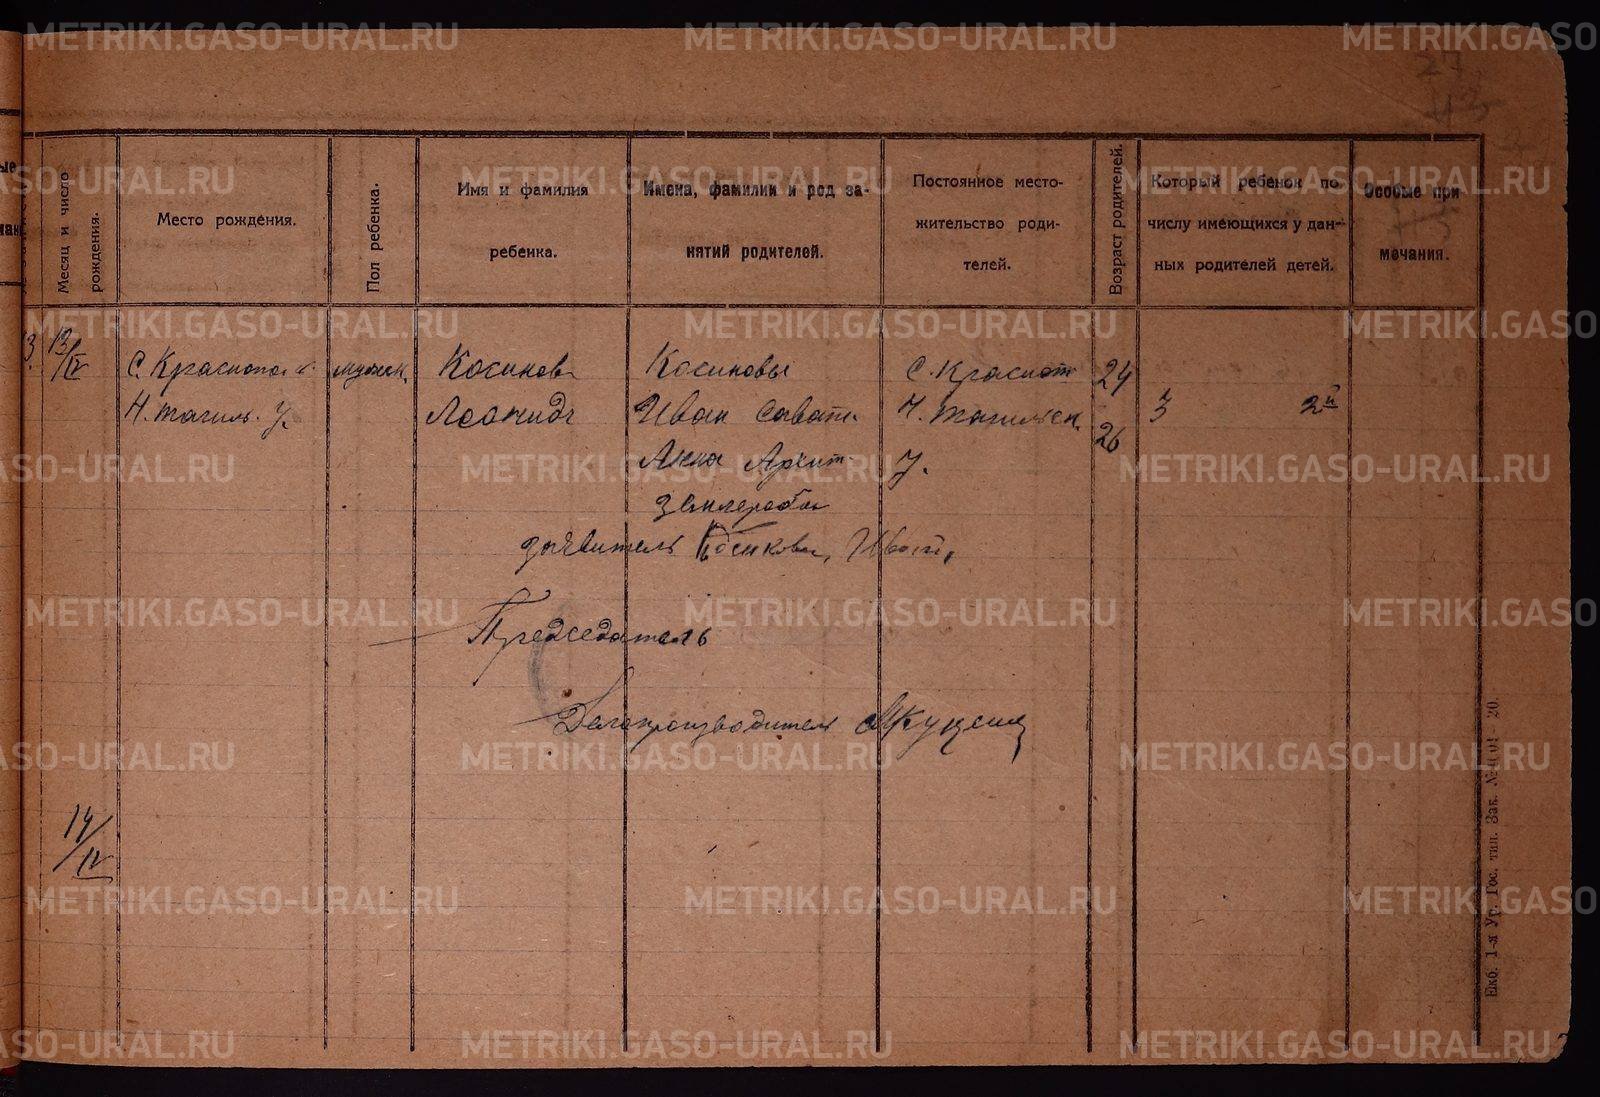 METRIKI.GASO-URAL.RU
27
43
Месяц и число рождения.
Место рождения.
Пол ребенка.
Имя и фамилия
ребенка.
Имена, фамилии и род за-
нятий родителей.
Постоянное место-
жительство роди-
телей.
Возраст родителей.
Который ребенок по
числу имеющихся у дан-
ных родителей детей.
Особые при-
мечания.
13/IV
С. Краснопол к.
Н. Тагиль. У.
мужск.
Косинов
Леонидъ
Косиновы
Иван Савать.
Анна Архип.
землеробы
С. Красноп.
Н. Тагильск.
У.
24
26
3
2й
заявитель Косинов, Иван,
Председатель
Делопроизводитель
14/IV
Екб. 1-я Ур. Гос. тип. Зак. 20.